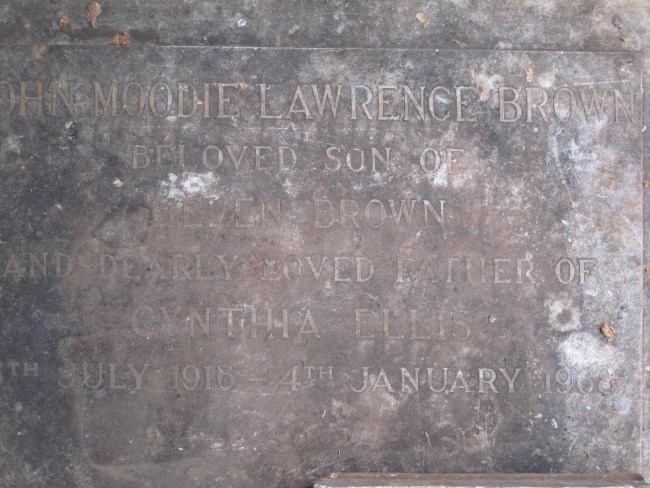 OHN MOODIE LAWRENCE BROWN
BELOVED SON OF
HELEN BROWN
AND DEARLY LOVED FATHER OF
CYNTHIA ELLIS
TH JULY 1918 – 4TH JANUARY